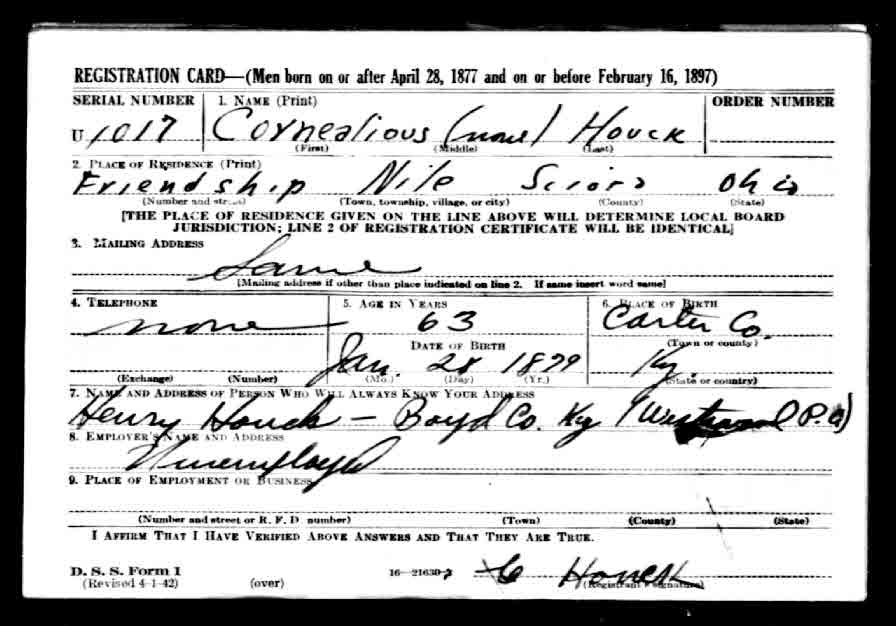 REGISTRATION CARD—(Men born on or after April 28, 1877 and on or before February 16, 1897)
SERIAL NUMBER 1. NAME (Print) ORDER NUMBER
U 1017 Cornealious (none) Houck
(First) (Middle) (Last)
2. PLACE OF RESIDENCE (Print)
Friendship Nile Scioto Ohio
(Number and street) (Town, township, village, or city) (County) (State)
[THE PLACE OF RESIDENCE GIVEN ON THE LINE ABOVE WILL DETERMINE LOCAL BOARD
JURISDICTION; LINE 2 OF REGISTRATION CERTIFICATE WILL BE IDENTICAL]
3. MAILING ADDRESS
Same
[Mailing address if other than place indicated on line 2. If same insert word same]
4. TELEPHONE 5. AGE IN YEARS 6. PLACE OF BIRTH
none 63 Carter Co.
DATE OF BIRTH (Town or county)
Jan. 28 1879 Ky.
(Exchange) (Number) (Mo.) (Day) (Yr.) (State or country)
7. NAME AND ADDRESS OF PERSON WHO WILL ALWAYS KNOW YOUR ADDRESS
Henry Houck — Boyd Co. Ky P.O)
8. EMPLOYER'S NAME AND ADDRESS
Unemployed
9. PLACE OF EMPLOYMENT OR BUSINESS
(Number and street or R. F. D. number) (Town) (County) (State)
I AFFIRM THAT I HAVE VERIFIED ABOVE ANSWERS AND THAT THEY ARE TRUE.
D. S. S. Form 1 16—21630-2 C Houck
(Revised 4-1-42) (over) (Registrant's signature)